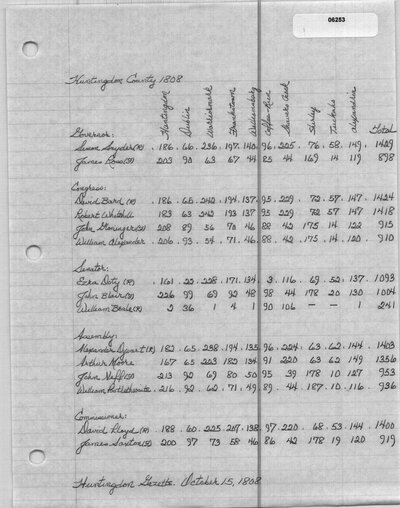 06253
Huntingdon County 1808
Huntingdon Dublin Warriormark Frankstown Williamsburg Coffee Run Shavers Creek Shirley Alexandria total
Governor:
Simon Snyder (R) 186. 66. 236. 197. 140. 96. 225. 76. 58. 149. 1429
James Ross (F) 203 90 63 67 44 85 44 169 14 119 898
Congress:
David Bard (R) 186. 65. 242. 194. 137. 95. 229. 72. 57. 147. 1424
Robert Whitehill 183 63 242 193 137 95 229 72 57 147 1418
John (F) 208 89 56 70 46 88 42 175 14 122 915
William Alexander 206. 93. 54. 71. 46. 88. 42. 175. 14. 120. 910
Senator:
Ezra Doty (R) 161. 22. 228. 171. 134. 3. 116. 69. 52. 137. 1093
John Blair (F) 226 99 69 92 48 98 44 178 20 130 1004
William Beale (R) 2 36 1 4 1 90 106 — — 1 241
Assembly:
Alexander Dysart (R) 182. 65. 238. 194. 135. 96. 224. 63. 62. 144. 1403
Arthur Moore 167 65 223 182 134 91 220 63 62 149 1356
John Neff (F) 213 92 69 80 50 95 39 178 10 127 953
William 216. 92. 62. 71. 49. 89. 44. 187. 10. 116. 936
Commissioner:
David Lloyd (R) 188. 60. 225. 138. 97. 220. 68. 53. 144. 1400
James Saxton (F) 200 97 73 58 46 86 42 178 19 120 919
Huntingdon Gazette. October 15, 1808